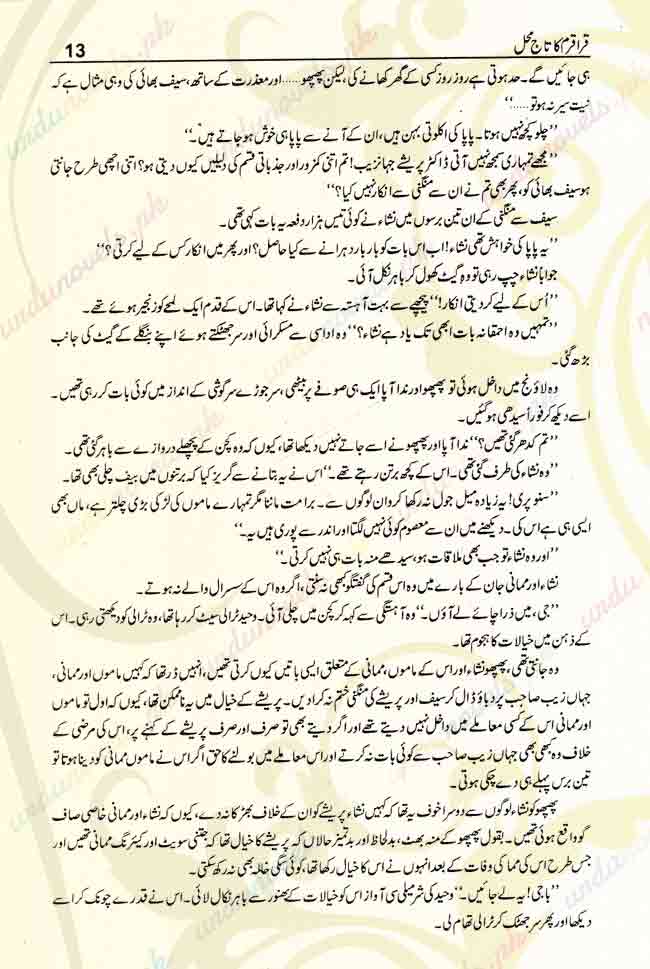 قراقرم کا تاج محل
13
ہی جائیں گے۔ حد ہوتی ہے روز روز کسی کے گھر کھانے کی، لیکن پھپھو...... اور معذرت کے ساتھ، سیف بھائی کی وہی مثال ہے کہ
نیت سیر نہ ہو تو......‘‘
’’چلو کچھ نہیں ہوتا۔ پاپا کی اکلوتی بہن ہیں، ان کے آنے سے پاپا ہی خوش ہو جاتے ہیں۔‘‘
’’مجھے تمہاری سمجھ نہیں آتی ڈاکٹر پریشے جہانزیب! تم اتنی کمزور اور جذباتی قسم کی دلیلیں کیوں دیتی ہو؟ اتنی اچھی طرح جانتی
ہو سیف بھائی کو، پھر بھی تم نے ان سے منگنی سے انکار نہیں کیا؟‘‘
سیف سے منگنی کے ان تین برسوں میں نشاء نے کوئی تیس ہزار دفعہ یہ بات کہی تھی۔
’’یہ پاپا کی خواہش تھی نشاء! اب اس بات کو بار بار دہرانے سے کیا حاصل؟ اور پھر میں انکار کس کے لیے کرتی؟‘‘
جواباً نشاء چپ رہی تو وہ گیٹ کھول کر باہر نکل آئی۔
’’اُس کے لیے کر دیتی انکار!‘‘ پیچھے سے بہت آہستہ سے نشاء نے کہا تھا۔ اس کے قدم ایک لمحے کو زنجیر ہوئے تھے۔
’’تمہیں وہ احمقانہ بات ابھی تک یاد ہے نشاء؟‘‘ وہ اداسی سے مسکرائی اور سر جھٹکتے ہوئے اپنے بنگلے کے گیٹ کی جانب
بڑھ گئی۔
وہ لاؤنج میں داخل ہوئی تو پھپھو اور ندا آپا ایک ہی صوفے پر بیٹھی، سر جوڑے سرگوشی کے انداز میں کوئی بات کر رہی تھیں۔
اسے دیکھ کر فوراً سیدھی ہو گئیں۔
’’تم کدھر گئی تھیں؟‘‘ ندا آپا اور پھپھو نے اسے جاتے نہیں دیکھا تھا، کیوں کہ وہ کچن کے پچھلے دروازے سے باہر گئی تھی۔
’’وہ نشاء کی طرف گئی تھی۔ اس کے کچھ برتن رہتے تھے۔‘‘ اس نے یہ بتانے سے گریز کیا کہ برتنوں میں بیف چلی بھی تھا۔
’’سنو پری! یہ زیادہ میل جول نہ رکھا کرو ان لوگوں سے۔ برا مت ماننا مگر تمہارے ماموں کی لڑکی بڑی چلتر ہے، ماں بھی
ایسی ہی ہے اس کی۔ دیکھنے میں ان سے معصوم کوئی نہیں لگتا اور اندر سے پوری ہیں یہ۔‘‘
’’اور وہ نشاء تو جب بھی ملاقات ہو، سیدھے منہ بات ہی نہیں کرتی۔‘‘
نشاء اور ممانی جان کے بارے میں وہ اس قسم کی گفتگو کبھی نہ سنتی، اگر وہ اس کے سسرال والے نہ ہوتے۔
’’جی، میں ذرا چائے لے آؤں۔‘‘ وہ آہستگی سے کہہ کر کچن میں چلی آئی۔ وحید ٹرالی سیٹ کر رہا تھا، وہ ٹرالی کو دیکھتی رہی۔ اس
کے ذہن میں خیالات کا ہجوم تھا۔
وہ جانتی تھی، پھپھو نشاء اور اس کے ماموں، ممانی کے متعلق ایسی باتیں کیوں کرتی تھیں، انہیں ڈر تھا کہ کہیں ماموں اور ممانی،
جہاں زیب صاحب پر دباؤ ڈال کر سیف اور پریشے کی منگنی ختم نہ کرا دیں۔ پریشے کے خیال میں یہ نا ممکن تھا، کیوں کہ اول تو ماموں
اور ممانی اس کے کسی معاملے میں داخل نہیں دیتے تھے اور اگر دیتے بھی تو صرف اور صرف پریشے کے کہنے پر، اس کی مرضی کے
خلاف وہ کبھی بھی جہاں زیب صاحب سے کوئی بات نہ کرتے اور اس معاملے میں بولنے کا حق اگر اس نے ماموں ممانی کو دینا ہوتا تو
تین برس پہلے ہی دے چکی ہوتی۔
پھپھو کو نشاء لوگوں سے دوسرا خوف یہ تھا کہ کہیں نشاء پریشے کو ان کے خلاف بھڑکا نہ دے، کیوں کہ نشاء اور ممانی خاصی صاف
گو واقع ہوئی تھیں۔ بقول پھپھو کے منہ پھٹ، بدلحاظ اور بدتمیز حالاں کہ پریشے کا خیال تھا کہ جتنی سویٹ اور کیئرنگ ممانی تھیں اور
جس طرح اس کی مما کی وفات کے بعد انہوں نے اس کا خیال رکھا تھا، کوئی سگی خالہ بھی نہ رکھ سکتی۔
’’باجی! یہ لے جائیں۔‘‘ وحید کی شرمیلی سی آواز اس کو خیالات کے بھنور سے باہر نکال لائی۔ اس نے قدرے چونک کر اسے
دیکھا اور پھر سر جھٹک کر ٹرالی تھام لی۔
urdunovels.pk